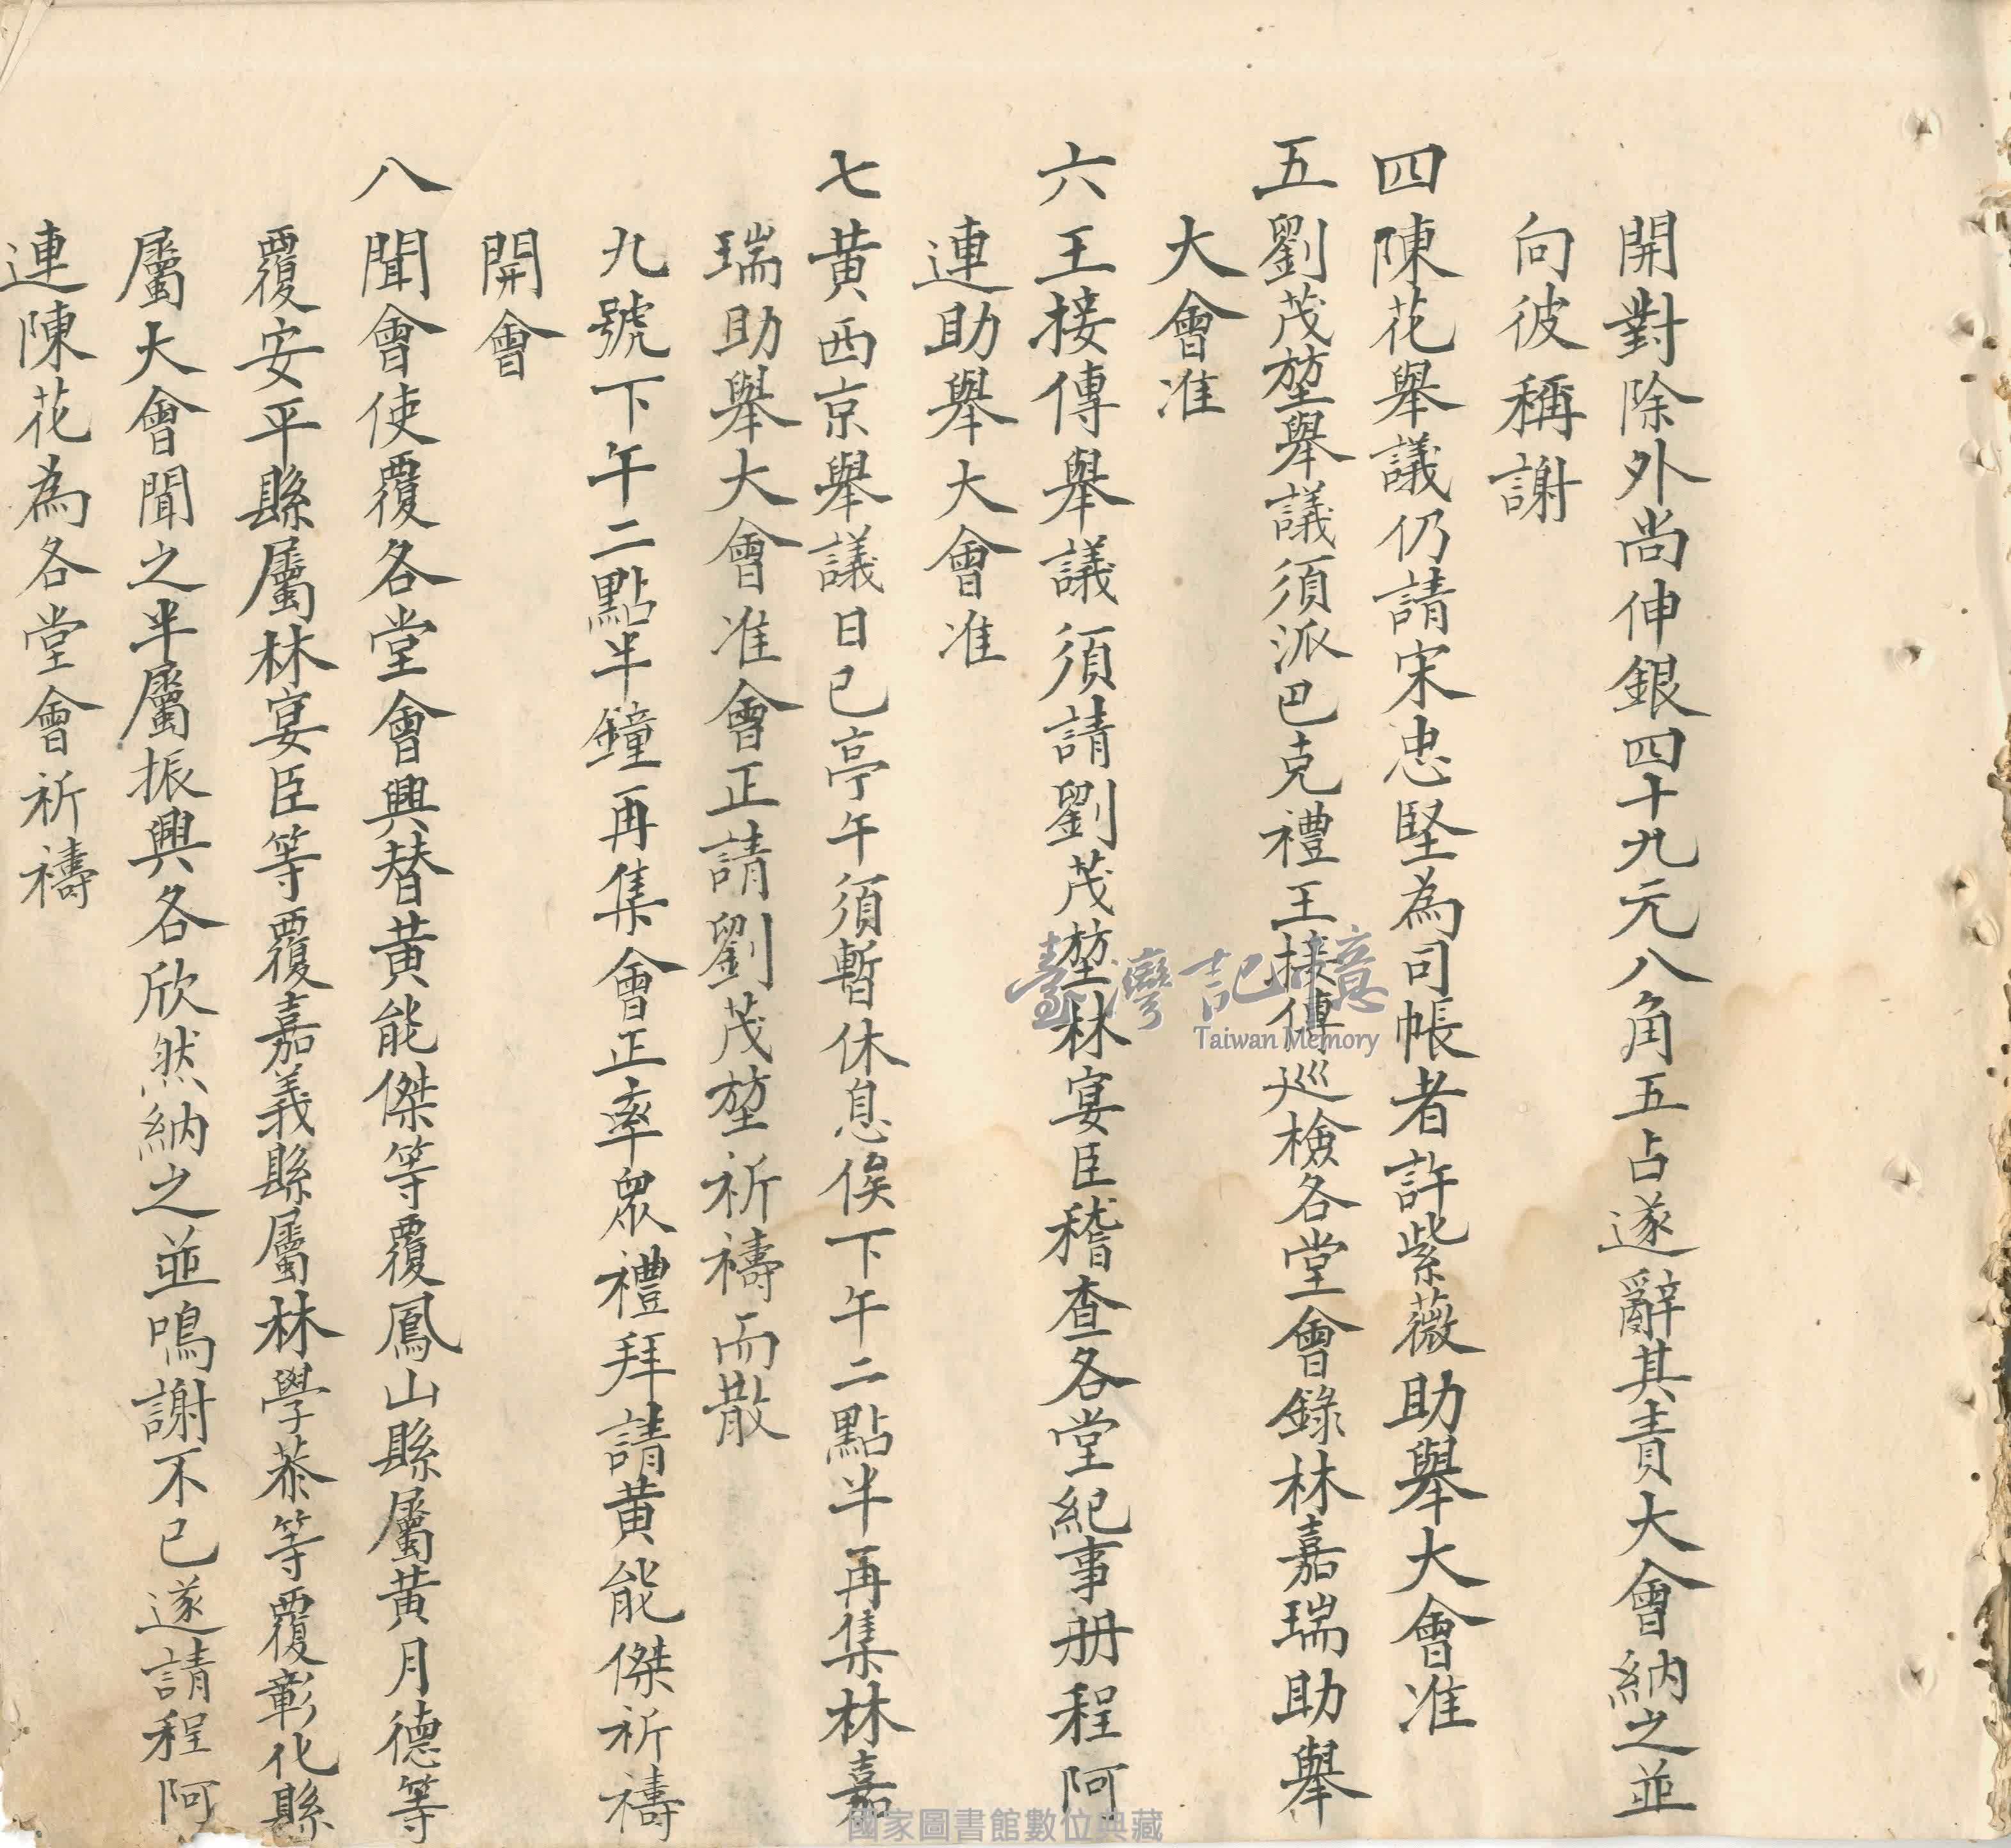 開對除外尚伸銀四十九元八角五占遂辭其責大會納之並
向彼稱謝
四陳花舉議仍請宋忠堅為司帳者許紫薇助舉大會准
五劉茂堃舉議須派巴克禮王接傳巡檢各堂會錄林嘉瑞助舉
大會准
六王接傳舉議須請劉茂堃林宴臣稽查各堂紀事册程阿
連助舉大會准
七黃西京舉議日已亭午須暫休息俟下午二點半再集林嘉
瑞助舉大會准會正請劉茂堃祈禱而散
九號下午二點半鐘再集會正率眾禮拜請黃能傑祈禱
開會
八聞會使覆各堂會興替黃能傑等覆鳳山縣屬黃月德等
覆安平縣屬林宴臣等覆嘉義縣屬林學恭等覆彰化縣
屬大會聞之半屬振興各欣然納之並鳴謝不已遂請程阿
連陳花為各堂會祈禱
臺灣記憶
Taiwan Memory
國家圖書館數位典藏